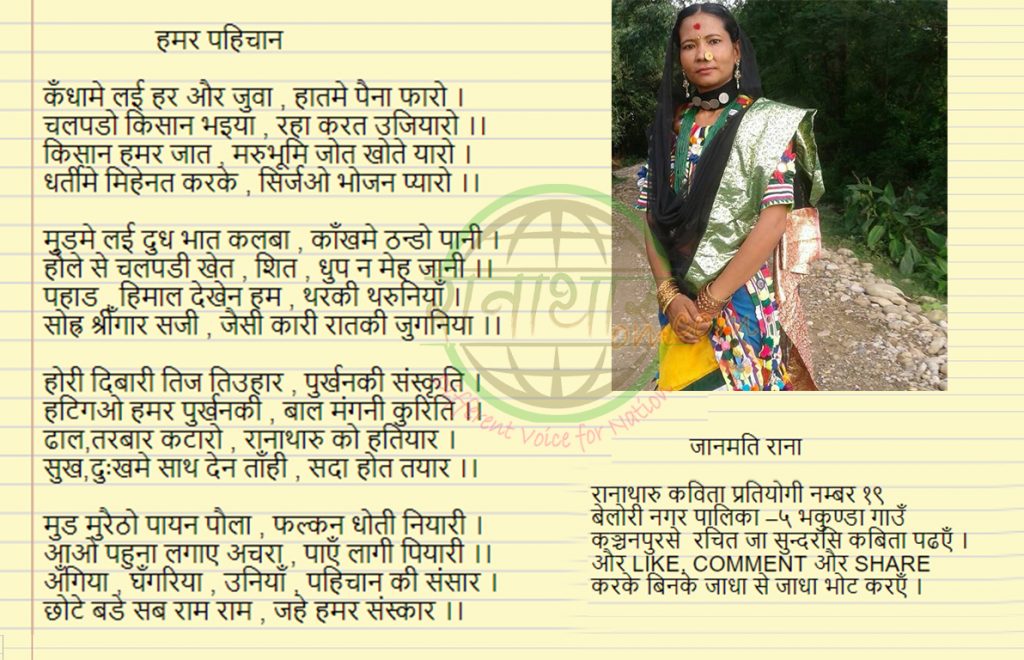 हमर पहिचान
कँधामे लई हर और जुवा , हातमे पैना फारो ।
चलपडो किसान भइया , रहा करत उजियारो ।।
किसान हमर जात , मरुभूमि जोत खोते यारो ।
धर्तीमे मिहेनत करके , सिर्जओ भोजन प्यारो ।।
मुडमे लई दुध भात कलबा , काँखमे ठन्डो पानी ।
होले से चलपडी खेत , शित , धुप न मेहु जानी ।।
पहाड , हिमाल देखेन हम , थरकी थरुनियाँ ।
सोह्र श्रीँगार सजी , जैसी कारी रातकी जुगनिया ।।
होरी दिबारी तिज तिउहार , पुर्खनकी संस्कृति ।
हटिगओ हमर पुर्खनकी , बाल मंगनी कुरिति ।।
ढाल,तरबार कटारो , रानाथारु को हतियार ।
सुख,दुःखमे साथ देन ताँही , सदा होत तयार ।।
मुड मुरैठो पायन पौला , फल्कन धोती नियारी ।
आओ पहुना लगाए अचरा , पाएँ लागी पियारी ।।
अँगिया , घँगरिया , उनियाँ , पहिचान की संसार ।
छोटे बडे सब राम राम , जहे हमर संस्कार ।।
जानमति राना
रानाथारु कविता प्रतियोगी नम्बर १९
बेलोरी नगर पालिका –५ भकुण्डा गाउँ
कञ्चनपुरसे रचित जा सुन्दरसि कबिता पढएँ ।
और LIKE, COMMENT और SHARE
करके बिनके जाधा से जाधा भोट करएँ ।
fferent Voice for Nation